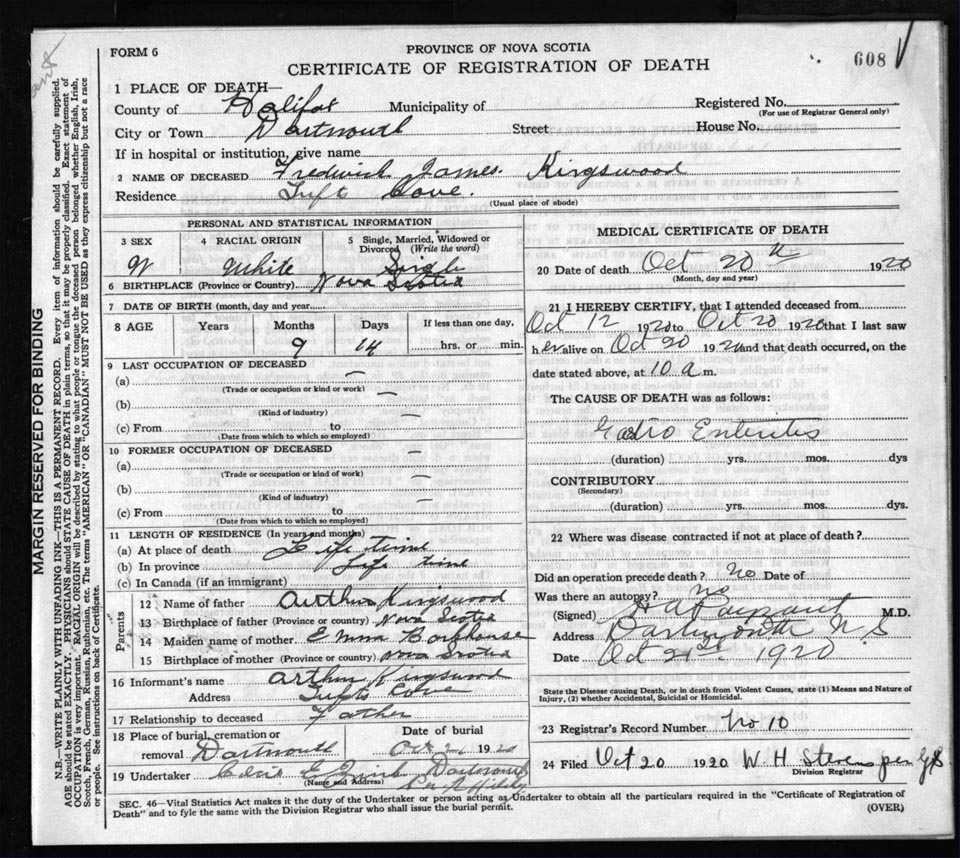 FORM 6
PROVINCE OF NOVA SCOTIA
608
CERTIFICATE OF REGISTRATION OF DEATH
1 PLACE OF DEATH—
County of Halifax Municipality of Registered No.
(For use of Registrar General only)
City or Town Dartmouth Street House No.
If in hospital or institution, give name
2 NAME OF DECEASED Frederick James Kingswood
Residence Tufts Cove.
(Usual place of abode)
PERSONAL AND STATISTICAL INFORMATION
3 SEX
4 RACIAL ORIGIN
5 Single, Married, Widowed or Divorced (Write the word)
White Single
6 BIRTHPLACE (Province or Country) Nova Scotia
7 DATE OF BIRTH (month, day and year)
8 AGE Years Months Days If less than one day,
9 14 hrs. or min.
9 LAST OCCUPATION OF DECEASED —
(a)
(Trade or occupation or kind of work)
(b) —
(Kind of industry)
(c) From to —
(Date from which to which so employed)
10 FORMER OCCUPATION OF DECEASED —
(a) —
(Trade or occupation or kind of work)
(b) —
(Kind of industry)
(c) From to
(Date from which to which so employed)
11 LENGTH OF RESIDENCE (In years and months)
(a) At place of death Life time
(b) In province Life time
(c) In Canada (if an immigrant)
Parents
12 Name of father Arthur Kingswood
13 Birthplace of father (Province or country) Nova Scotia
14 Maiden name of mother Emma
15 Birthplace of mother (Province or country) Nova Scotia
16 Informant's name Arthur Kingswood
Address Tufts Cove
17 Relationship to deceased Father
18 Place of burial, cremation or Date of burial
removal Dartmouth Oct 1920
19 Undertaker Dartmouth
(Name and Address)
MEDICAL CERTIFICATE OF DEATH
20 Date of death Oct 20th 1920
(Month, day and year)
21 I HEREBY CERTIFY, that I attended deceased from
Oct 12 1920 to Oct 20 1920 that I last saw
h alive on Oct 20 1920 and that death occurred, on the
date stated above, at 10 a m.
The CAUSE OF DEATH was as follows:
Gastro Enteritis
(duration) yrs. mos. dys
CONTRIBUTORY
(Secondary)
(duration) yrs. mos. dys.
22 Where was disease contracted if not at place of death?
Did an operation precede death? no Date of
Was there an autopsy? no
(Signed) M.D.
Address Dartmouth N S
Date Oct 21st 1920
State the Disease causing Death, or in death from Violent Causes, state (1) Means and Nature of
Injury, (2) whether Accidental, Suicidal or Homicidal.
23 Registrar's Record Number No 10
24 Filed Oct 20 1920 W. H. Stevens per
Division Registrar
SEC. 46—Vital Statistics Act makes it the duty of the Undertaker or person acting as Undertaker to obtain all the particulars required in the "Certificate of Registration of
Death" and to fyle the same with the Division Registrar who shall issue the burial permit. (OVER)
MARGIN RESERVED FOR BINDING
N.B.—WRITE PLAINLY WITH UNFADING INK—THIS IS A PERMANENT RECORD. Every item of information should be carefully supplied.
AGE should be stated EXACTLY. PHYSICIANS should STATE CAUSE OF DEATH in plain terms, so that it may be properly classified. Exact statement of
OCCUPATION is very important. RACIAL ORIGIN will be described by stating to what people or tongue the deceased person belonged whether English, Irish,
Scotch, French, German, Russian, Ruthenian, etc. The terms "AMERICAN" OR "CANADIAN" MUST NOT BE USED as they express citizenship but not a race
or people. See instructions on back of Certificate.